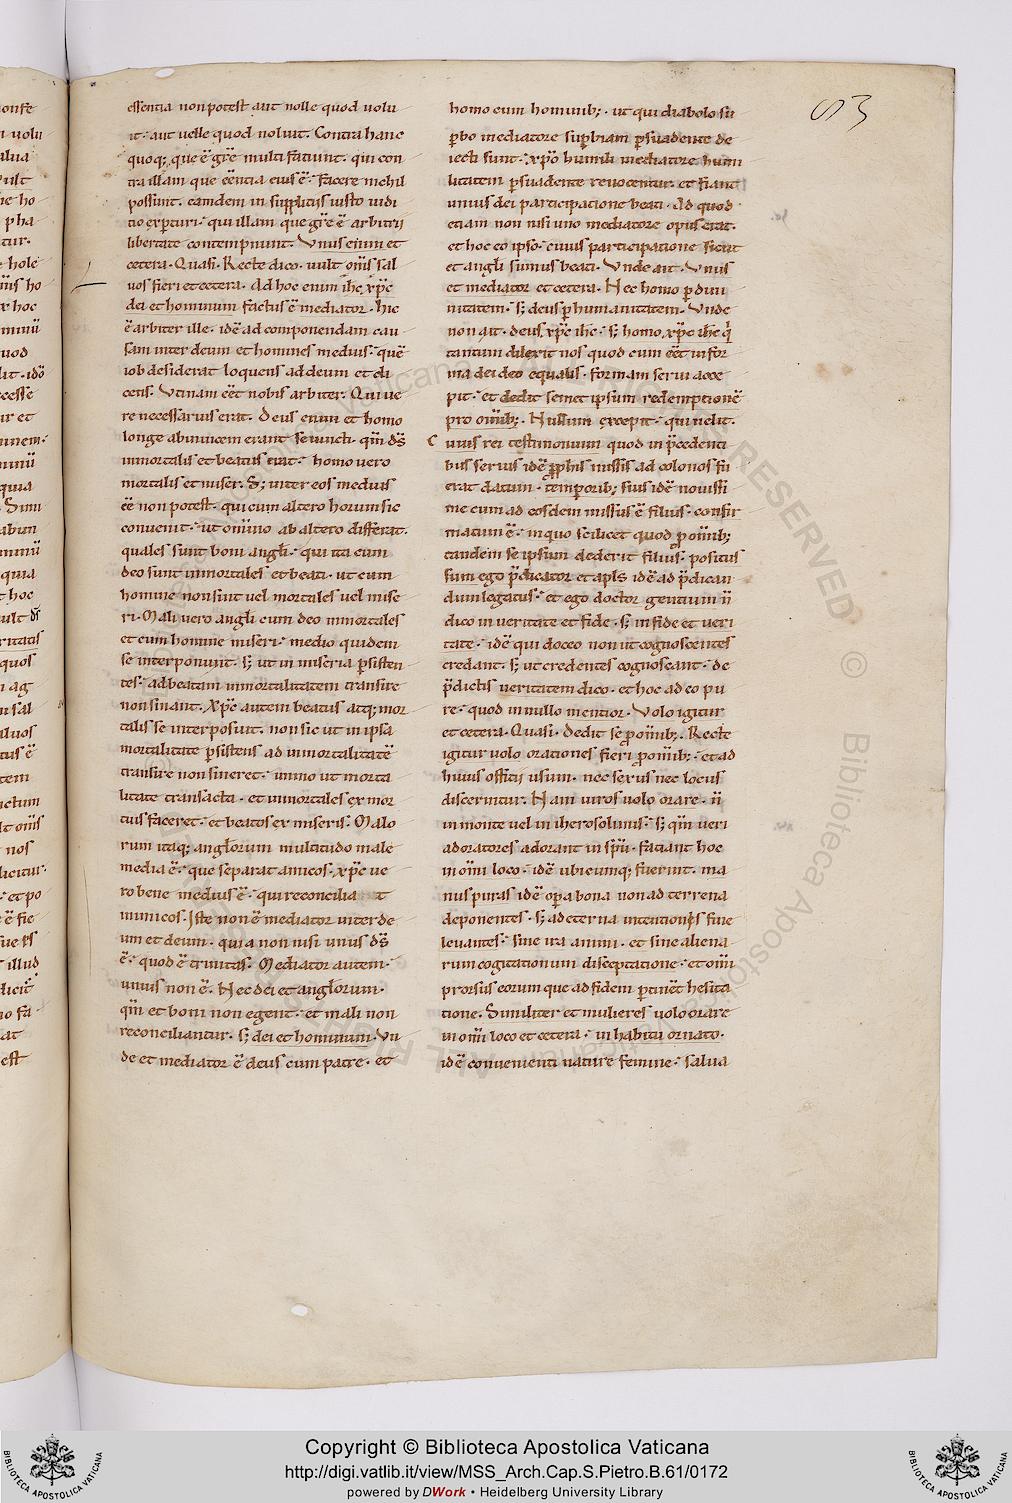 essentia non potest aut nolle quod uolu
it· aut uelle quod noluit. Contra hanc
quoq; que ē gr̄e multi faciunt. qui con
tra illam que eēntia eius ē· facere nichil
possunt. eamdem in suppliciis iusto iudi
tio exp̄turi· qui illam que gr̄e ē arbitrii
libertate contempnunt. Vnus enim et
cetera. Quasi. Recte dico. uult om̄s sal
uos fieri et cetera. Ad hoc enim ih̄c xp̄c
dei et hominum factus ē mediator. hic
ē arbiter ille. idē ad componendam cau
sam inter deum et homines medius· quē
iob desiderat loquens ad deum et di
cens. Vtinam eēt nobis arbiter. Qui ue
re necessarius erat. Deus enim et homo
longe abinuicem erant seiuncti. qm̄ ds̄
inmortalis et beatus erat· homo uero
mortalis et miser. S; inter eos medius
eē non potest. qui cum altero horum sic
conuenit· ut om̄ino ab altero differat.
quales sunt boni angl̄i· qui ita cum
deo sunt inmortales et beati. ut cum
homine non sint uel mortales uel mise
ri. Mali uero angl̄i cum deo inmortales
et cum homine miseri· medio quidem
se interponunt. s; ut in miseria p̄sisten
tes· ad beatam inmortalitatem transire
non sinant. Xp̄c autem beatus atq; mor
talis se interposuit. non sic ut in ipsa
mortalitate p̄sistens ad inmortalitatē
transire non sineret· immo ut morta
litate transacta. et inmortales ex mor
tuis faceret· et beatos ex miseris. Malo
rum itaq; anglorum multitudo male
media ē· que separat amicos. xp̄c ue
ro bene medius ē· qui reconciliat
inimicos. Iste non ē mediator inter de
um et deum. quia non nisi unus ds̄
ē· quod ē trinitas. Mediator autem·
unius non ē. Nec dei et anglorum.
qm̄ et boni non egent· et mali non
reconciliantur. s; dei et hominum. Vn
de et mediator ē deus cum patre. et
53
homo cum hominib;. ut qui diabolo su
p̄bo mediatore sup̄biam p̄suadente de
iecti sunt· xp̄o humili mediatore humi
litatem p̄suadente reuocentur. et fiant
unius dei participatione beati. Ad quod
etiam non nisi uno mediatore opus erat.
et hoc eo ipso· cuius participatione sicut
et angl̄i sumus beati. Vnde ait. Vnus
et mediator et cetera. Nec homo p̄ diui
nitatem. s; deus p̄ humanitatem. Vnde
non ait. deus xp̄c ih̄c· s; homo xp̄c ih̄c q̄
tantum dilexit nos quod cum eēt in for
ma dei deo equalis. formam serui acce
pit· et dedit semet ipsum redemptionē
pro om̄ib;. Nullum excepit· qui uelit.
uius rei testimonium quod in p̄cedenti
bus seruis idē pp̄his missis ad colonos fu
erat datum. temporib; suis idē nouissi
me cum ad eosdem missus ē filius. confir
matum ē· in quo scilicet quod p̄ om̄ib;
tandem se ipsum dederit filius. positus
sum ego p̄dicator et apl̄s idē ad p̄dican
dum legatus· et ego doctor gentium ū
dico in ueritate et fide. s; in fide et ueri
tate· idē qui doceo non ut cognoscentes
credant. s; ut credentes cognoscant· de
p̄dictis ueritatem dico. et hoc adeo pu
re· quod in nullo mentior. Volo igitur
et cetera. Quasi. Dedit se p̄ om̄ib;. Recte
igitur uolo orationes fieri p̄ om̄ib;· et ad
huius offitii usum. nec sexus nec locus
discernitur. Nam uiros uolo orare. ū
in monte uel in iherosolimis· s; qm̄ ueri
adoratores adorant in sp̄u. faciant hoc
in om̄i loco. idē ubicumq; fuerint. ma
nus puras idē op̄a bona non ad terrena
deponentes. s; ad eterna intentionis sine
leuantes· sine ira animi. et sine aliena
rum cogitationum disceptatione· et om̄i
prorsus eorum que ad fidem p̄tinēt hesita
tione. Similiter et mulieres uolo orare
in om̄i loco et cetera. in habitu ornato.
idē conuenienti nature femine· salua
Copyright © Biblioteca Apostolica Vaticana
http://digi.vatlib.it/view/MSS_Arch.Cap.S.Pietro.B.61/0172
powered by DWork • Heidelberg University Library